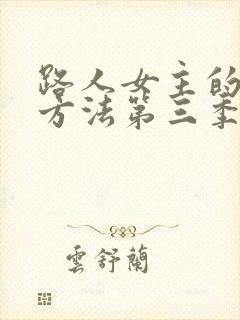 路人女主的
方法第三季
雲舒蘭